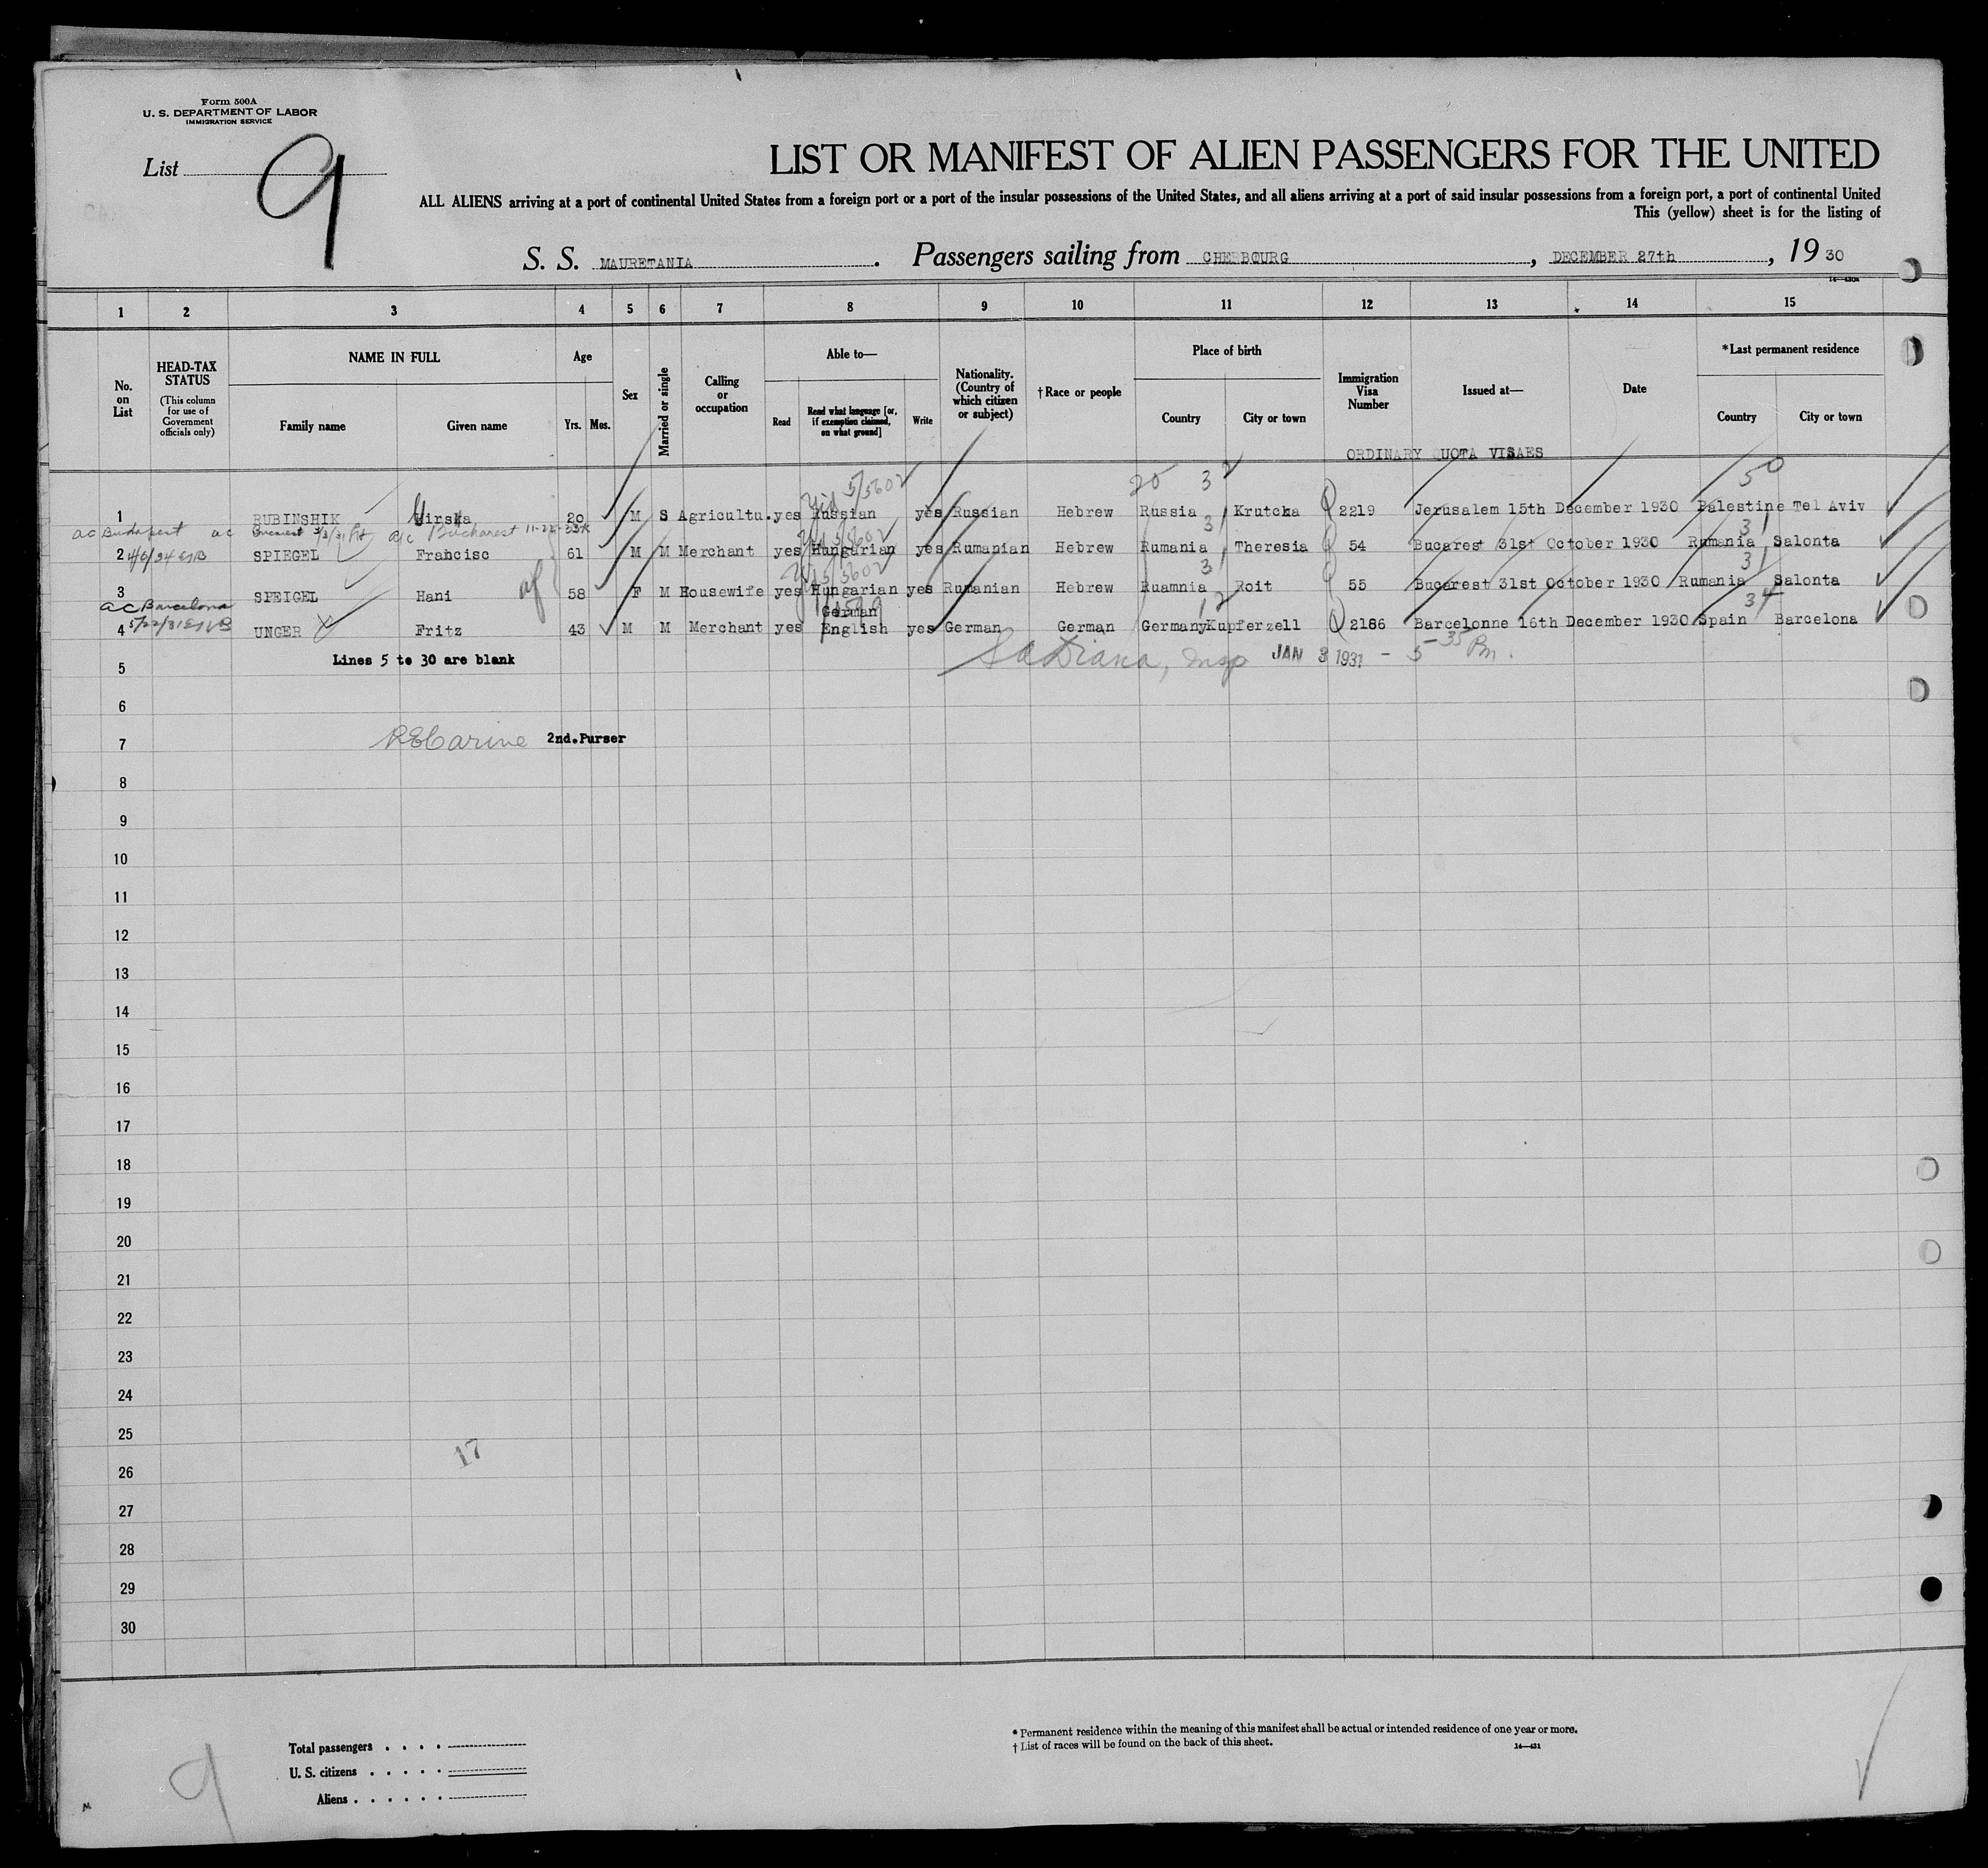 Form 500A
U. S. DEPARTMENT OF LABOR
IMMIGRATION SERVICE
List 9
LIST OR MANIFEST OF ALIEN PASSENGERS FOR THE UNITED
ALL ALIENS arriving at a port of continental United States from a foreign port or a port of the insular possessions of the United States, and all aliens arriving at a port of said insular possessions from a foreign port, a port of continental United
This (yellow) sheet is for the listing of
S. S. MAURETANIA. Passengers sailing from CHERBOURG, DECEMBER 27th, 1930
14—430A
1 2 3 4 5 6 7 8 9 10 11 12 13 14 15
No. on List
HEAD-TAX STATUS
(This column for use of Government officials only)
NAME IN FULL
Family name
Given name
Age
Yrs. Mos.
Sex
Married or single
Calling or occupation
Able to—
Read
Read what language [or, if exemption claimed, on what ground]
Write
Nationality. (Country of which citizen or subject)
†Race or people
Place of birth
Country
City or town
Immigration Visa Number
Issued at—
Date
*Last permanent residence
Country
City or town
ORDINARY QUOTA VISAES
Yid 5/5602
20 3 50
1 RUBINSHIK 20 M S Agricultu. yes Russian yes Russian Hebrew Russia Krutcka 2219 Jerusalem 15th December 1930 Palestine Tel Aviv
ac Budapest ac Bucarest 3/3/31 a/c Bucharest 11-22-33
31 31
2 4/6/34 SPIEGEL Francisc 61 M M Merchant yes Hungarian yes Rumanian Hebrew Rumania Theresia 54 Bucarest 31st October 1930 Rumania Salonta
31 31
3 SPEIGEL Hani 58 F M Housewife yes Hungarian yes Rumanian Hebrew Ruamnia Roit 55 Bucarest 31st October 1930 Rumania Salonta
ac Barcelona
German
12 34
5/22/31
4 UNGER Fritz 43 M M Merchant yes English yes German German Germany Kupferzell 2186 Barcelonne 16th December 1930 Spain Barcelona
Lines 5 to 30 are blank
Insp JAN 3 1931 - 5-35 Pm.
5
6
7 2nd.Purser
8
9
10
11
12
13
14
15
16
17
18
19
20
21
22
23
24
25
17
26
27
28
29
30
* Permanent residence within the meaning of this manifest shall be actual or intended residence of one year or more.
† List of races will be found on the back of this sheet.
14—431
Total passengers
U. S. citizens
Aliens
9